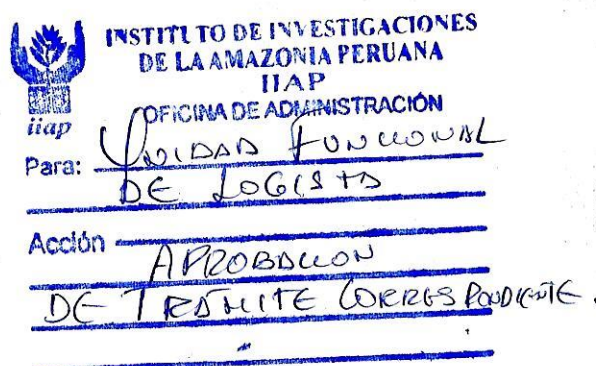 INSTITUTO DE INVESTIGACIONES
DE LA AMAZONIA PERUANA
IIAP
iiap
OFICINA DE ADMINISTRACIÓN
Para: UNIDAD FUNCIONAL
DE LOGISTA
Acción
APROBACION
DE TRÁMITE CORRESPONDIENTE.